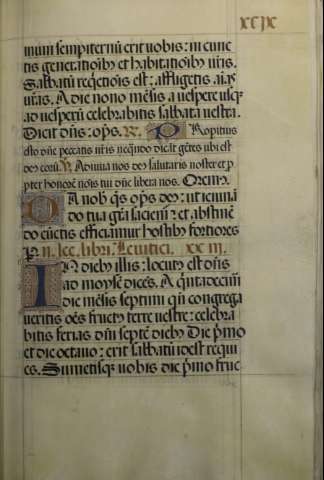 xcix
mum sempiternũ erit uobis: in cunc
tis generatioĩbꝫ et habitatioĩbꝫ ur̃is.
Sabbatũ reqͥetiois est: affligetis aĩas
ur̃as. A die nono mẽsis a uespere usqꝫ
ad uesperũ celebrabitis sabbata uestra.
Dicit dñs: op̃s. R̃. Propitius
esto dñe peccatis nr̃is neqũdo dicãt gẽtes ubi est
deꝰ eorũ. V̷. Adiuua nos deꝰ salutaris noster et p
pter honorẽ nois̃ tui dñe libera nos. Oremꝰ.
Da nobꝫ q̃s op̃s deꝰ: ut ieiunã
do tua gr̃a saciemᷣ: et abstinẽ
do cũctis efficiamur hostibꝫ fortiores
P n. lec. libri Leuitici. xxiij.
In diebꝫ illis: locutꝰ est dñs
ad moysẽ dicẽs. A qͥntadecim̃
die mẽsis septimi qñ congrega
ueritis oẽs fructꝰ terre uestre: celebra
bitis ferias dñi septẽ diebꝫ Die pͥmo
et die octauo: erit sabbatũ idest requi
es. Sumetisqꝫ uobis die pͥmo fruc